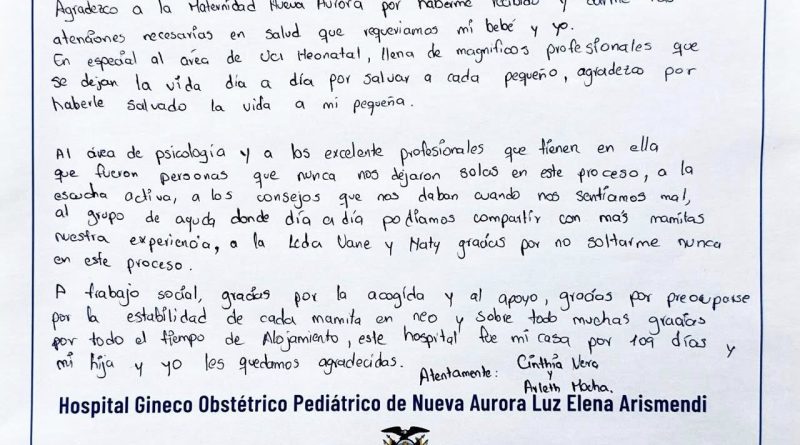 Agradezco a la Maternidad Nueva Aurora por haberme recibido y
atenciones necesarias en salud que requeriamos mi bebé y yo.
En especial al área de Uci Neonatal, llena de magnificos profesionales que
se dejan la vida día a día por salvar a cada pequeño, agradezco por
haberle salvado la vida a mi pequeña.
Al área de psicología y a los excelente profesionales que tienen en ella
que fueron personas que nunca nos dejaron solas en este proceso, a la
escucha activa, a los consejos que nos daban cuando nos sentíamos mal,
al grupo de ayuda donde día a día podíamos compartir con más mamitas
nuestra experiencia, a la Lcda Vane y Naty gracias por no soltarme nunca
en este proceso.
A trabajo social, gracias por la acogida y al apoyo, gracias por preocuparse
por la estabilidad de cada mamita en neo y sobre todo muchas gracias
por todo el tiempo de Alojamiento, este hospital fue mi casa por 109 días y
mi hija y yo les quedamos agradecidas.
Atentamente: Cinthia Vera
y
Arleth Macha.
Hospital Gineco Obstétrico Pediátrico de Nueva Aurora Luz Elena Arismendi